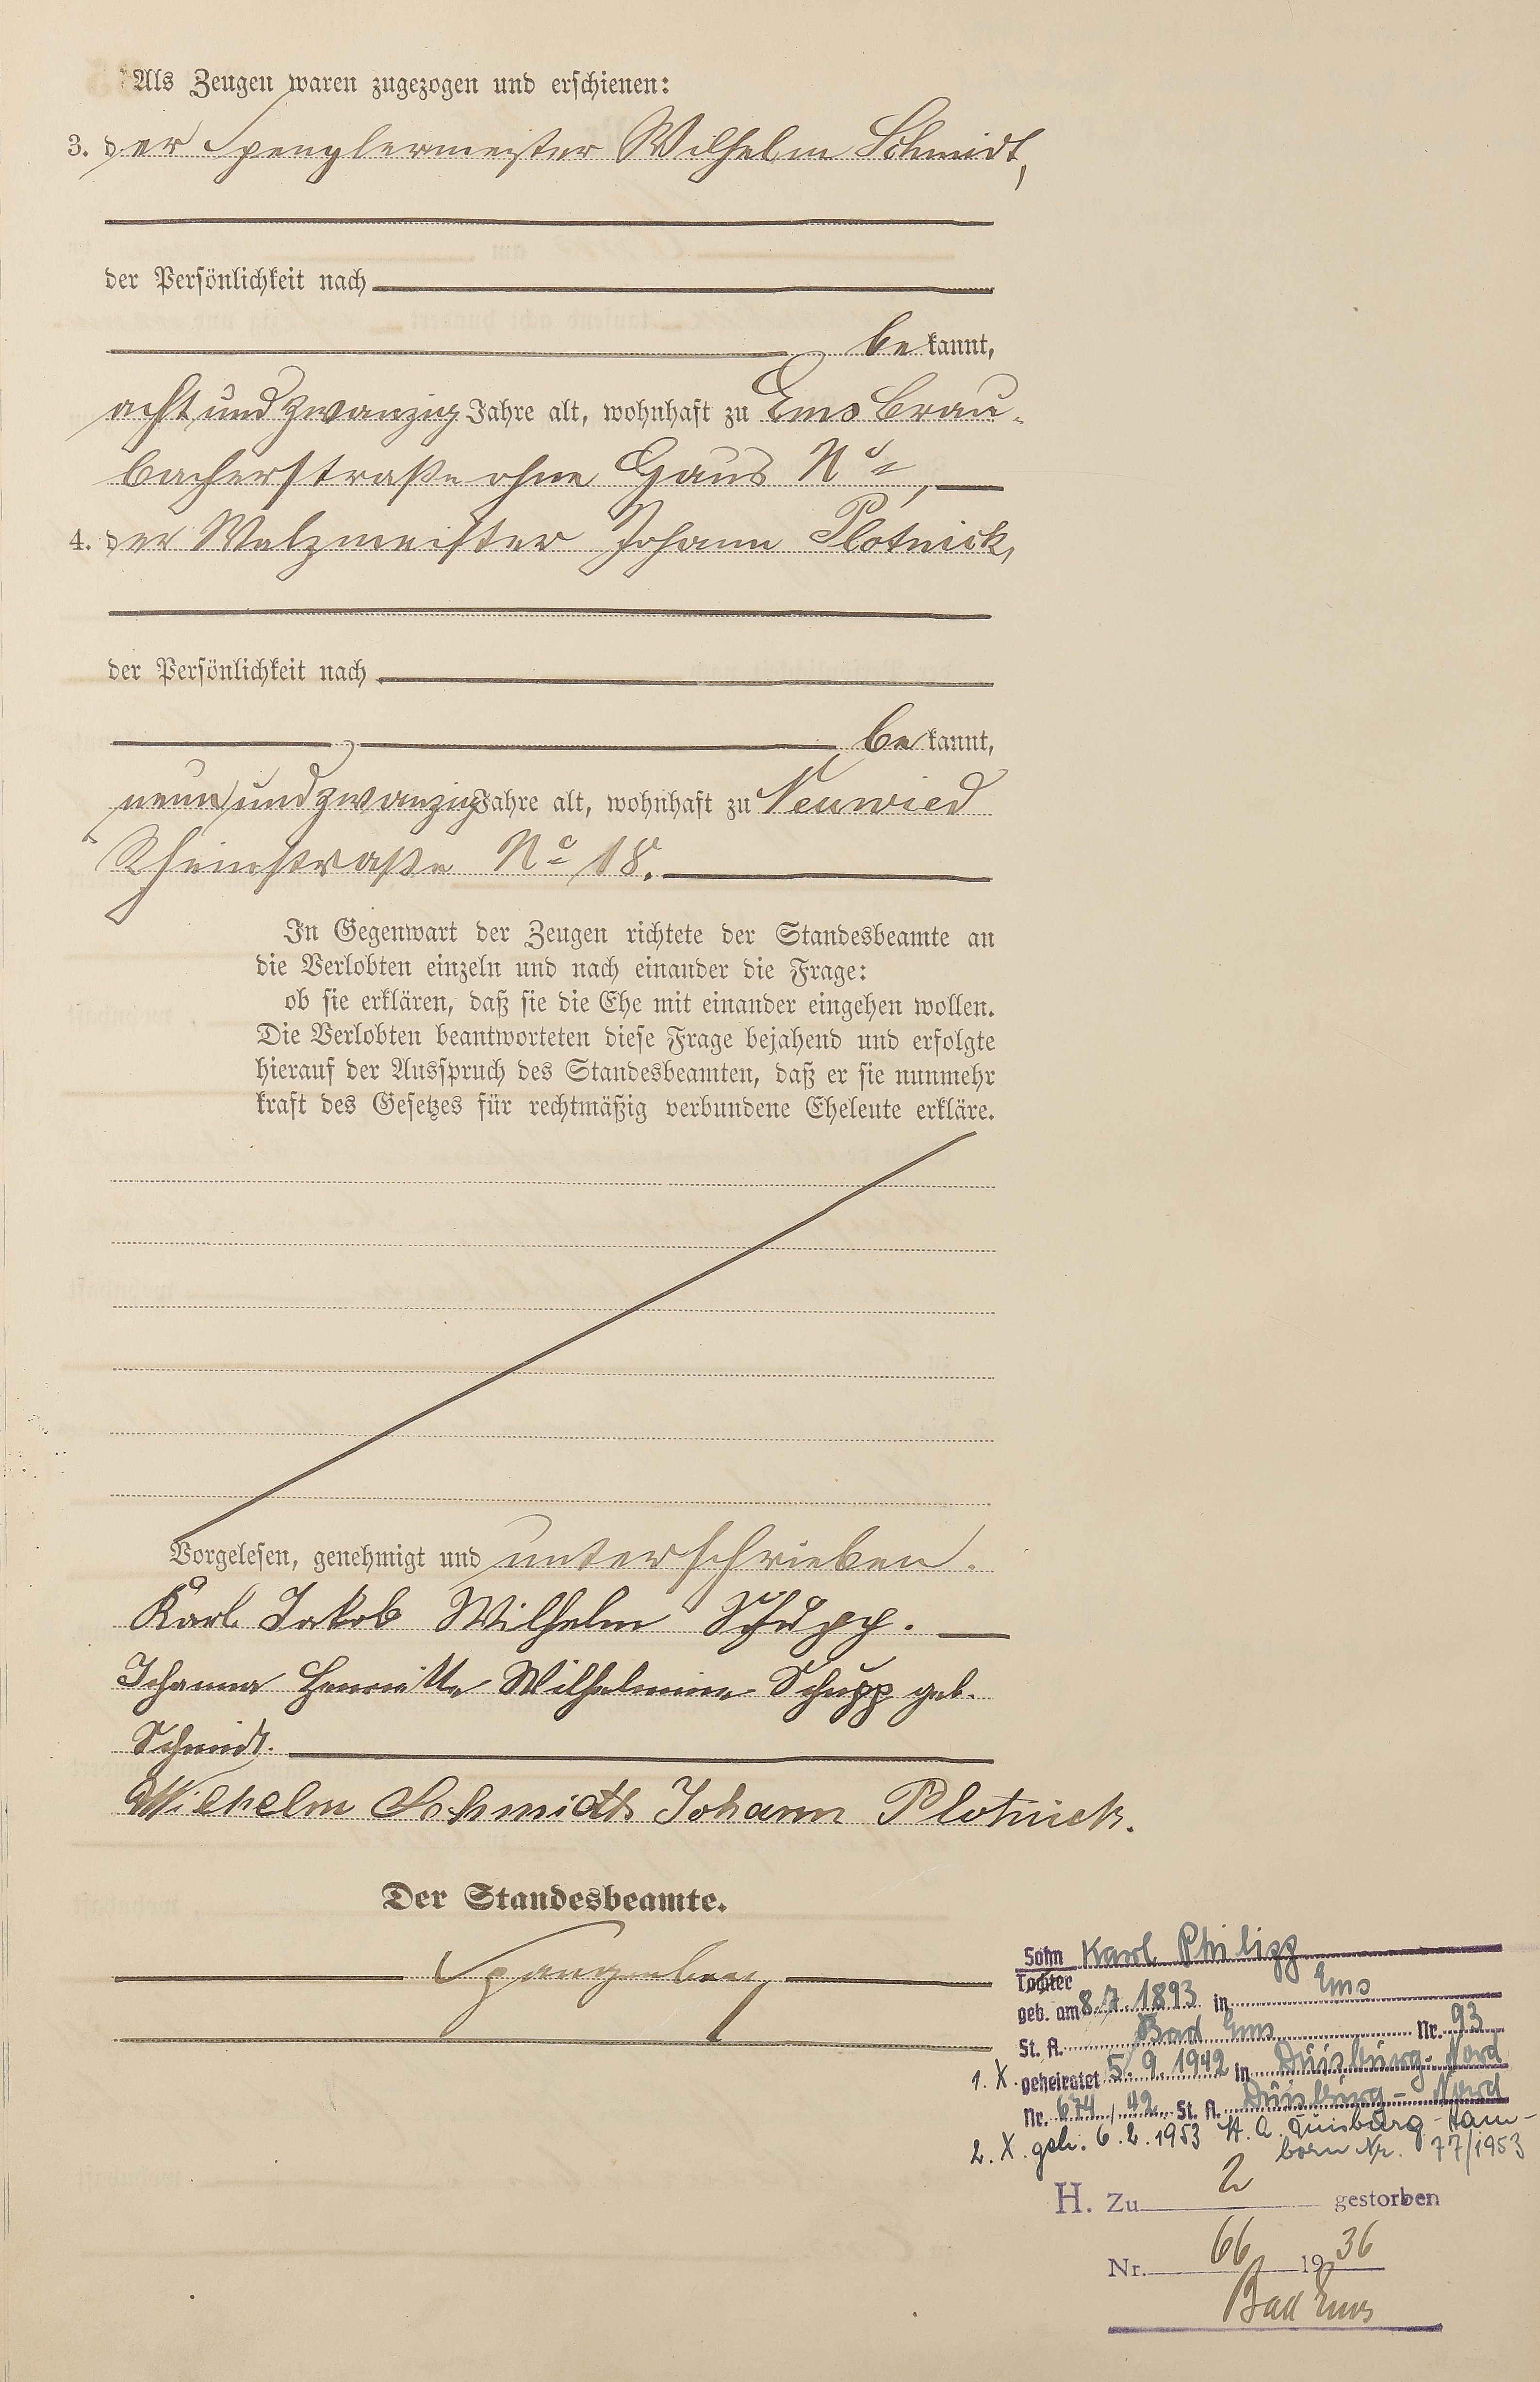 Als Zeugen waren zugezogen und erschienen:
3. der Spenglermeister Wilhelm Schmidt,
der Persönlichkeit nach
bekannt,
acht und zwanzig Jahre alt, wohnhaft zu Ems Brau-
bacherstraße ohne Haus No,
4. der Walzmeister Johann Plotnick,
der Persönlichkeit nach
bekannt,
neun und zwanzig Jahre alt, wohnhaft zu Neuwied
Rheinstraße No 18.
In Gegenwart der Zeugen richtete der Standesbeamte an
die Verlobten einzeln und nach einander die Frage:
ob sie erklären, daß sie die Ehe mit einander eingehen wollen.
Die Verlobten beantworteten diese Frage bejahend und erfolgte
hierauf der Ausspruch des Standesbeamten, daß er sie nunmehr
kraft des Gesetzes für rechtmäßig verbundene Eheleute erkläre.
Vorgelesen, genehmigt und unterschrieben.
Karl Jakob Wilhelm Schupp.
Johanna Henriette Wilhelmine Schupp geb.
Schmidt.
Wilhelm Schmidt Johann Plotnick.
Der Standesbeamte.
Spangenberg
Sohn Karl Philipp
Tochter
geb. am 8.7.1893 in Ems
St. A. Bad Ems Nr. 93
1. X. geheiratet 5.9.1942 in Duisburg-Nord
Nr. 674/42 St. A. Duisburg-Nord
2. X. geh. 6.2.1953 St. A. Duisburg-Ham-
born Nr. 77/1953
H. Zu 2 gestorben
Nr. 66 1936
Bad Ems